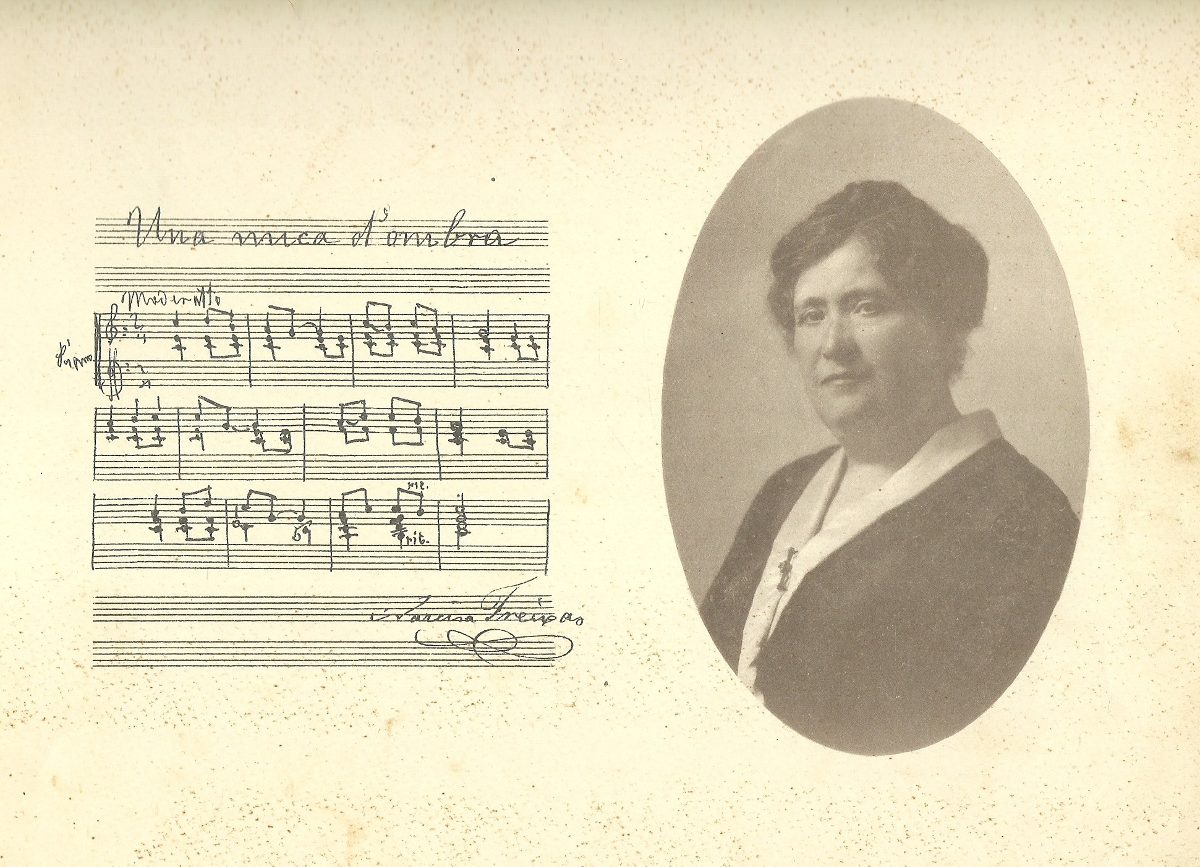 Una mica d'ombra
Moderatto
Piano
rit.
Narcisa Freixas